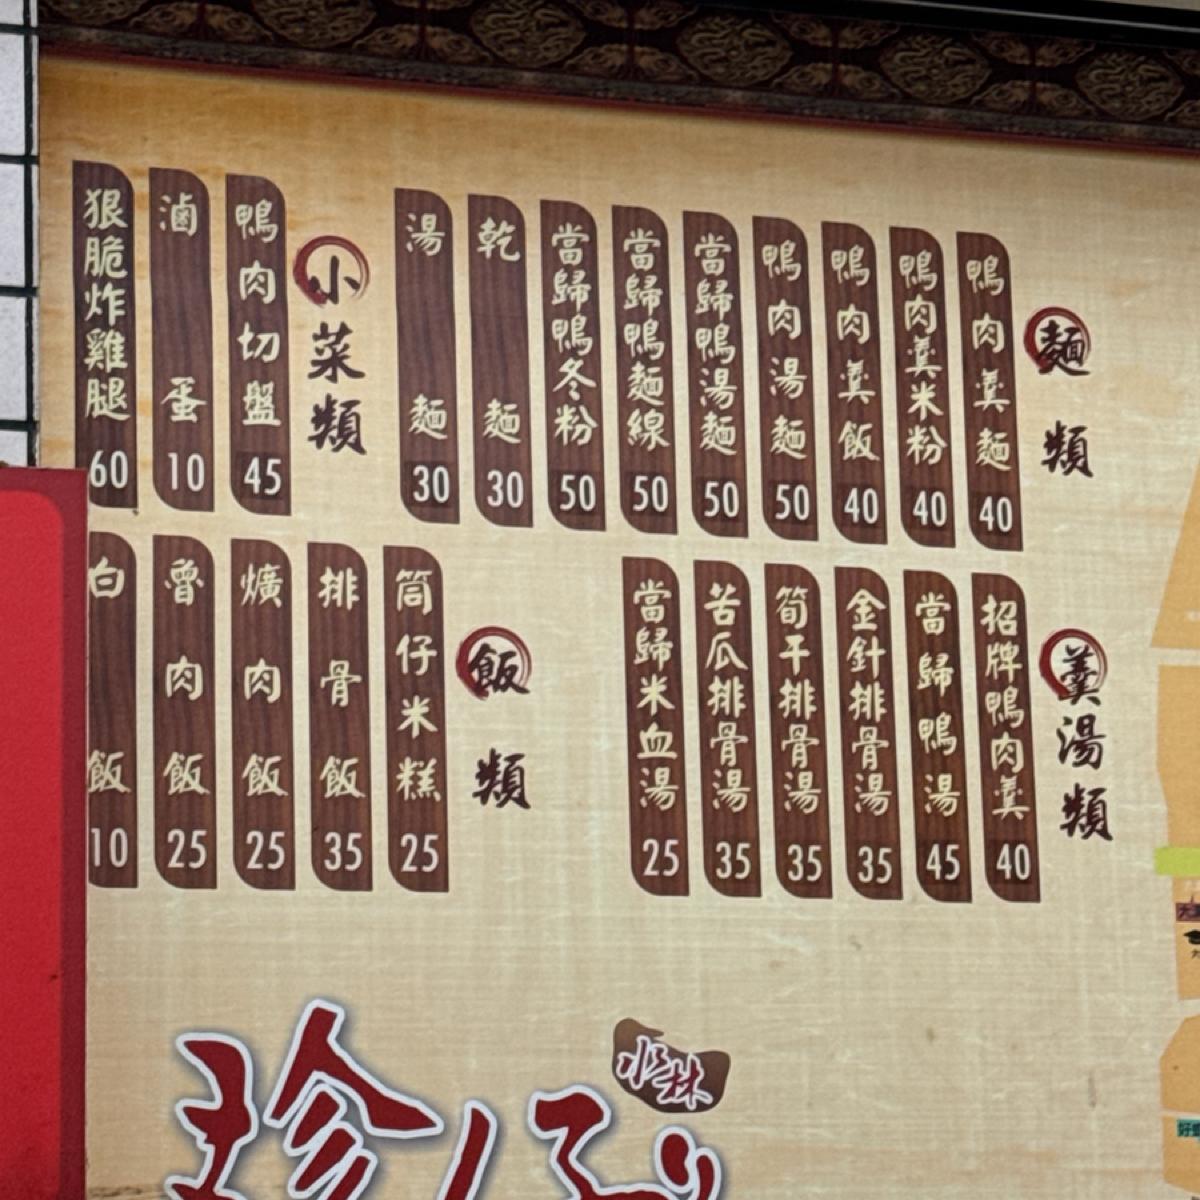 麵類
鴨肉羹麵 40
鴨肉羹米粉 40
鴨肉羹飯 40
鴨肉湯麵 50
當歸鴨湯麵 50
當歸鴨麵線 50
當歸鴨冬粉 50
乾麵 30
湯麵 30
小菜類
鴨肉切盤 45
滷蛋 10
狠脆炸雞腿 60
羹湯類
招牌鴨肉羹 40
當歸鴨湯 45
金針排骨湯 35
筍干排骨湯 35
苦瓜排骨湯 35
當歸米血湯 25
飯類
筒仔米糕 25
排骨飯 35
爌肉飯 25
魯肉飯 25
白飯 10
珍仔